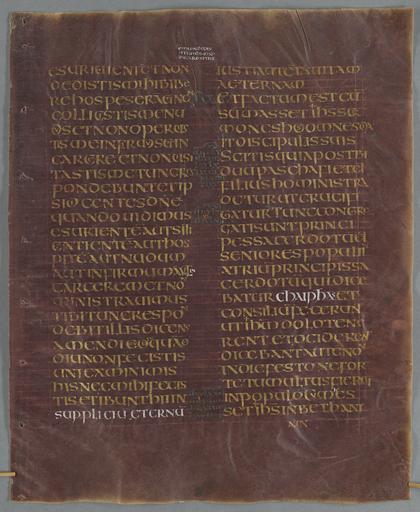 ESURIUIENIMETNON
DEDISTISMIHIBIBE
REHOSPESERAMETNO
COLLIGISTISMENU
DUSETNONOPERUIS
TISMEINFIRMUSETIN
CARCEREETNONUISI
TASTISMETUNCRES
PONDEBUNTETIP
SIDICENTESDNE
QUANDOUIDIMUS
ESURIENTEAUTSITI
ENTEAUTHOS
PITEAUTNUDUM
AUTINFIRMUMAUTIN
CARCEREMETNO
MINISTRAUIMUS
TIBITUNCRESPO
DEBITILLISDICENS
AMENDICOQUAM
DIUNONFECISTIS
UNIEXMINIMIS
HISNECMIHIFECIS
TISETIBUNTHIIIN
SUPPLICIU ETERNU
IUSTIAUTEINUITAM
AETERNAM
ETFACTUMESTCU
SUMMASSETIHSSER
MONESHOSOMNES
DISCIPULISSUIS
SCITISQUIAPOSTBI
DUUPASCHAFIETET
FILIUSHOMINISTRA
DETURUTCRUCIFI
GATURTUNCCONGRE
GATISUNTPRINCI
PESSACERDOTUET
SENIORESPOPULIIN
ATRIUPRINCIPISSA
CERDOTUQUIDICE
BATURCHAIPHASET
CONSILIUFECERUN
UTIHMDOLOTENE
RENTETOCCIDEREN
DICEBANTAUTENON
INDIEFESTONEFOR
TETUMULTUSFIERET
INPOPULOCUMES
SETIHSINBETHANI